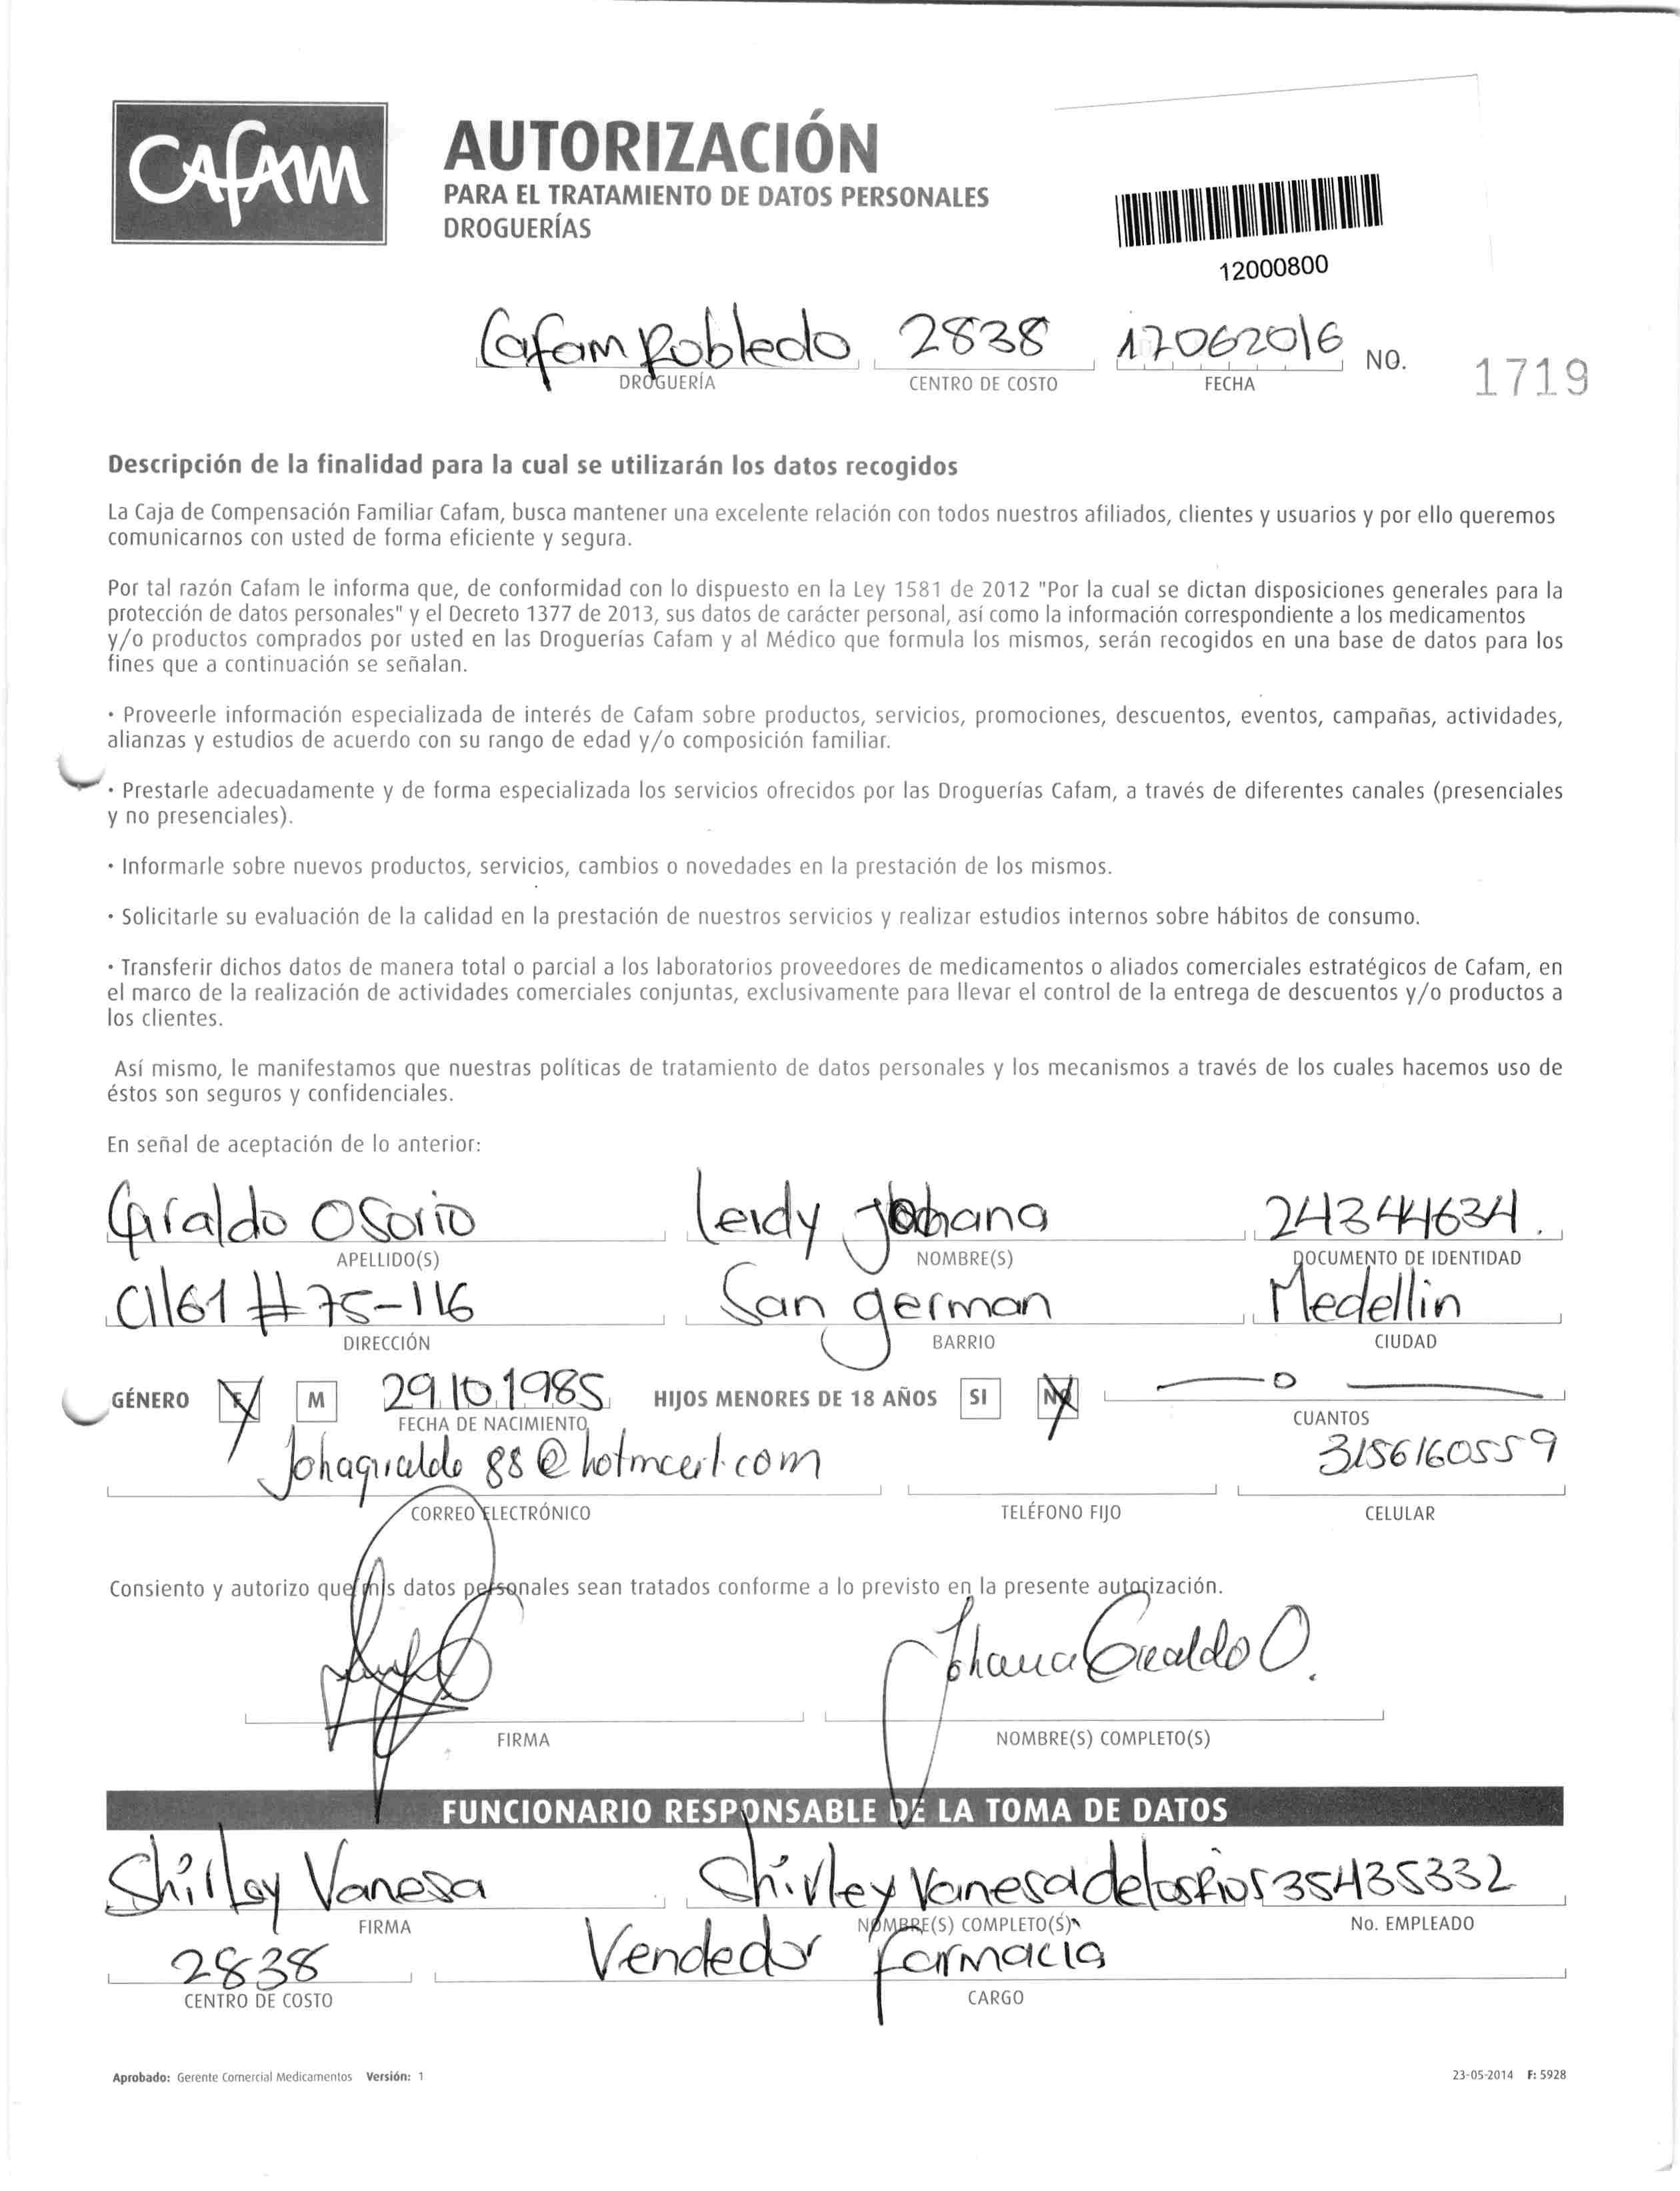 CAFAM
AUTORIZACIÓN
PARA EL TRATAMIENTO DE DATOS PERSONALES
DROGUERÍAS
12000800
Cafam Robledo 2838 17062016 NO. 1719
DROGUERÍA CENTRO DE COSTO FECHA
Descripción de la finalidad para la cual se utilizarán los datos recogidos
La Caja de Compensación Familiar Cafam, busca mantener una excelente relación con todos nuestros afiliados, clientes y usuarios y por ello queremos
comunicarnos con usted de forma eficiente y segura.
Por tal razón Cafam le informa que, de conformidad con lo dispuesto en la Ley 1581 de 2012 "Por la cual se dictan disposiciones generales para la
protección de datos personales" y el Decreto 1377 de 2013, sus datos de carácter personal, así como la información correspondiente a los medicamentos
y/o productos comprados por usted en las Droguerías Cafam y al Médico que formula los mismos, serán recogidos en una base de datos para los
fines que a continuación se señalan.
· Proveerle información especializada de interés de Cafam sobre productos, servicios, promociones, descuentos, eventos, campañas, actividades,
alianzas y estudios de acuerdo con su rango de edad y/o composición familiar.
· Prestarle adecuadamente y de forma especializada los servicios ofrecidos por las Droguerías Cafam, a través de diferentes canales (presenciales
y no presenciales).
· Informarle sobre nuevos productos, servicios, cambios o novedades en la prestación de los mismos.
· Solicitarle su evaluación de la calidad en la prestación de nuestros servicios y realizar estudios internos sobre hábitos de consumo.
· Transferir dichos datos de manera total o parcial a los laboratorios proveedores de medicamentos o aliados comerciales estratégicos de Cafam, en
el marco de la realización de actividades comerciales conjuntas, exclusivamente para llevar el control de la entrega de descuentos y/o productos a
los clientes.
Así mismo, le manifestamos que nuestras políticas de tratamiento de datos personales y los mecanismos a través de los cuales hacemos uso de
éstos son seguros y confidenciales.
En señal de aceptación de lo anterior:
Giraldo Osorio Leidy Johana 24344634.
APELLIDO(S) NOMBRE(S) DOCUMENTO DE IDENTIDAD
Cll 61 #75-116 San german Medellin
DIRECCIÓN BARRIO CIUDAD
GÉNERO F M 29.10.1985 HIJOS MENORES DE 18 AÑOS SI NO — 0 —
FECHA DE NACIMIENTO CUANTOS
Johagiraldo 88@hotmail.com 3156160559
CORREO ELECTRÓNICO TELÉFONO FIJO CELULAR
Consiento y autorizo que mis datos personales sean tratados conforme a lo previsto en la presente autorización.
Johana Giraldo O.
FIRMA NOMBRE(S) COMPLETO(S)
FUNCIONARIO RESPONSABLE DE LA TOMA DE DATOS
Shirley Vanesa Shirley Vanesa de los Rios 35435332
FIRMA NOMBRE(S) COMPLETO(S) No. EMPLEADO
2838 Vendedor farmacia
CENTRO DE COSTO CARGO
Aprobado: Gerente Comercial Medicamentos Versión: 1 23-05-2014 F: 5928